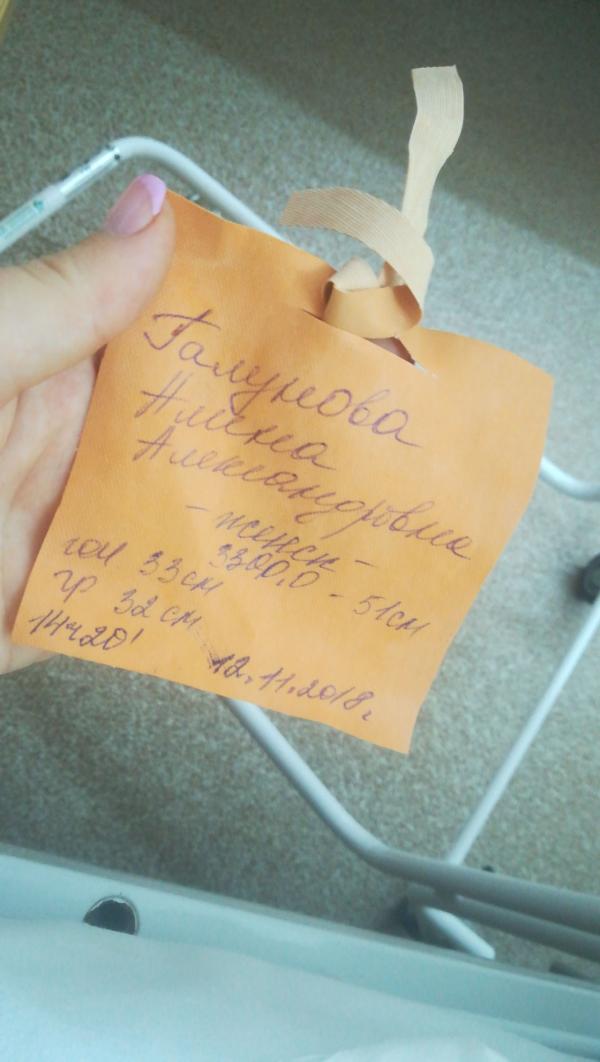 Галунова
Алина
Александровна
- женск -
3300,0 - 51см
гол 33 см
гр 32 см
14ч20'
12.11.2018г